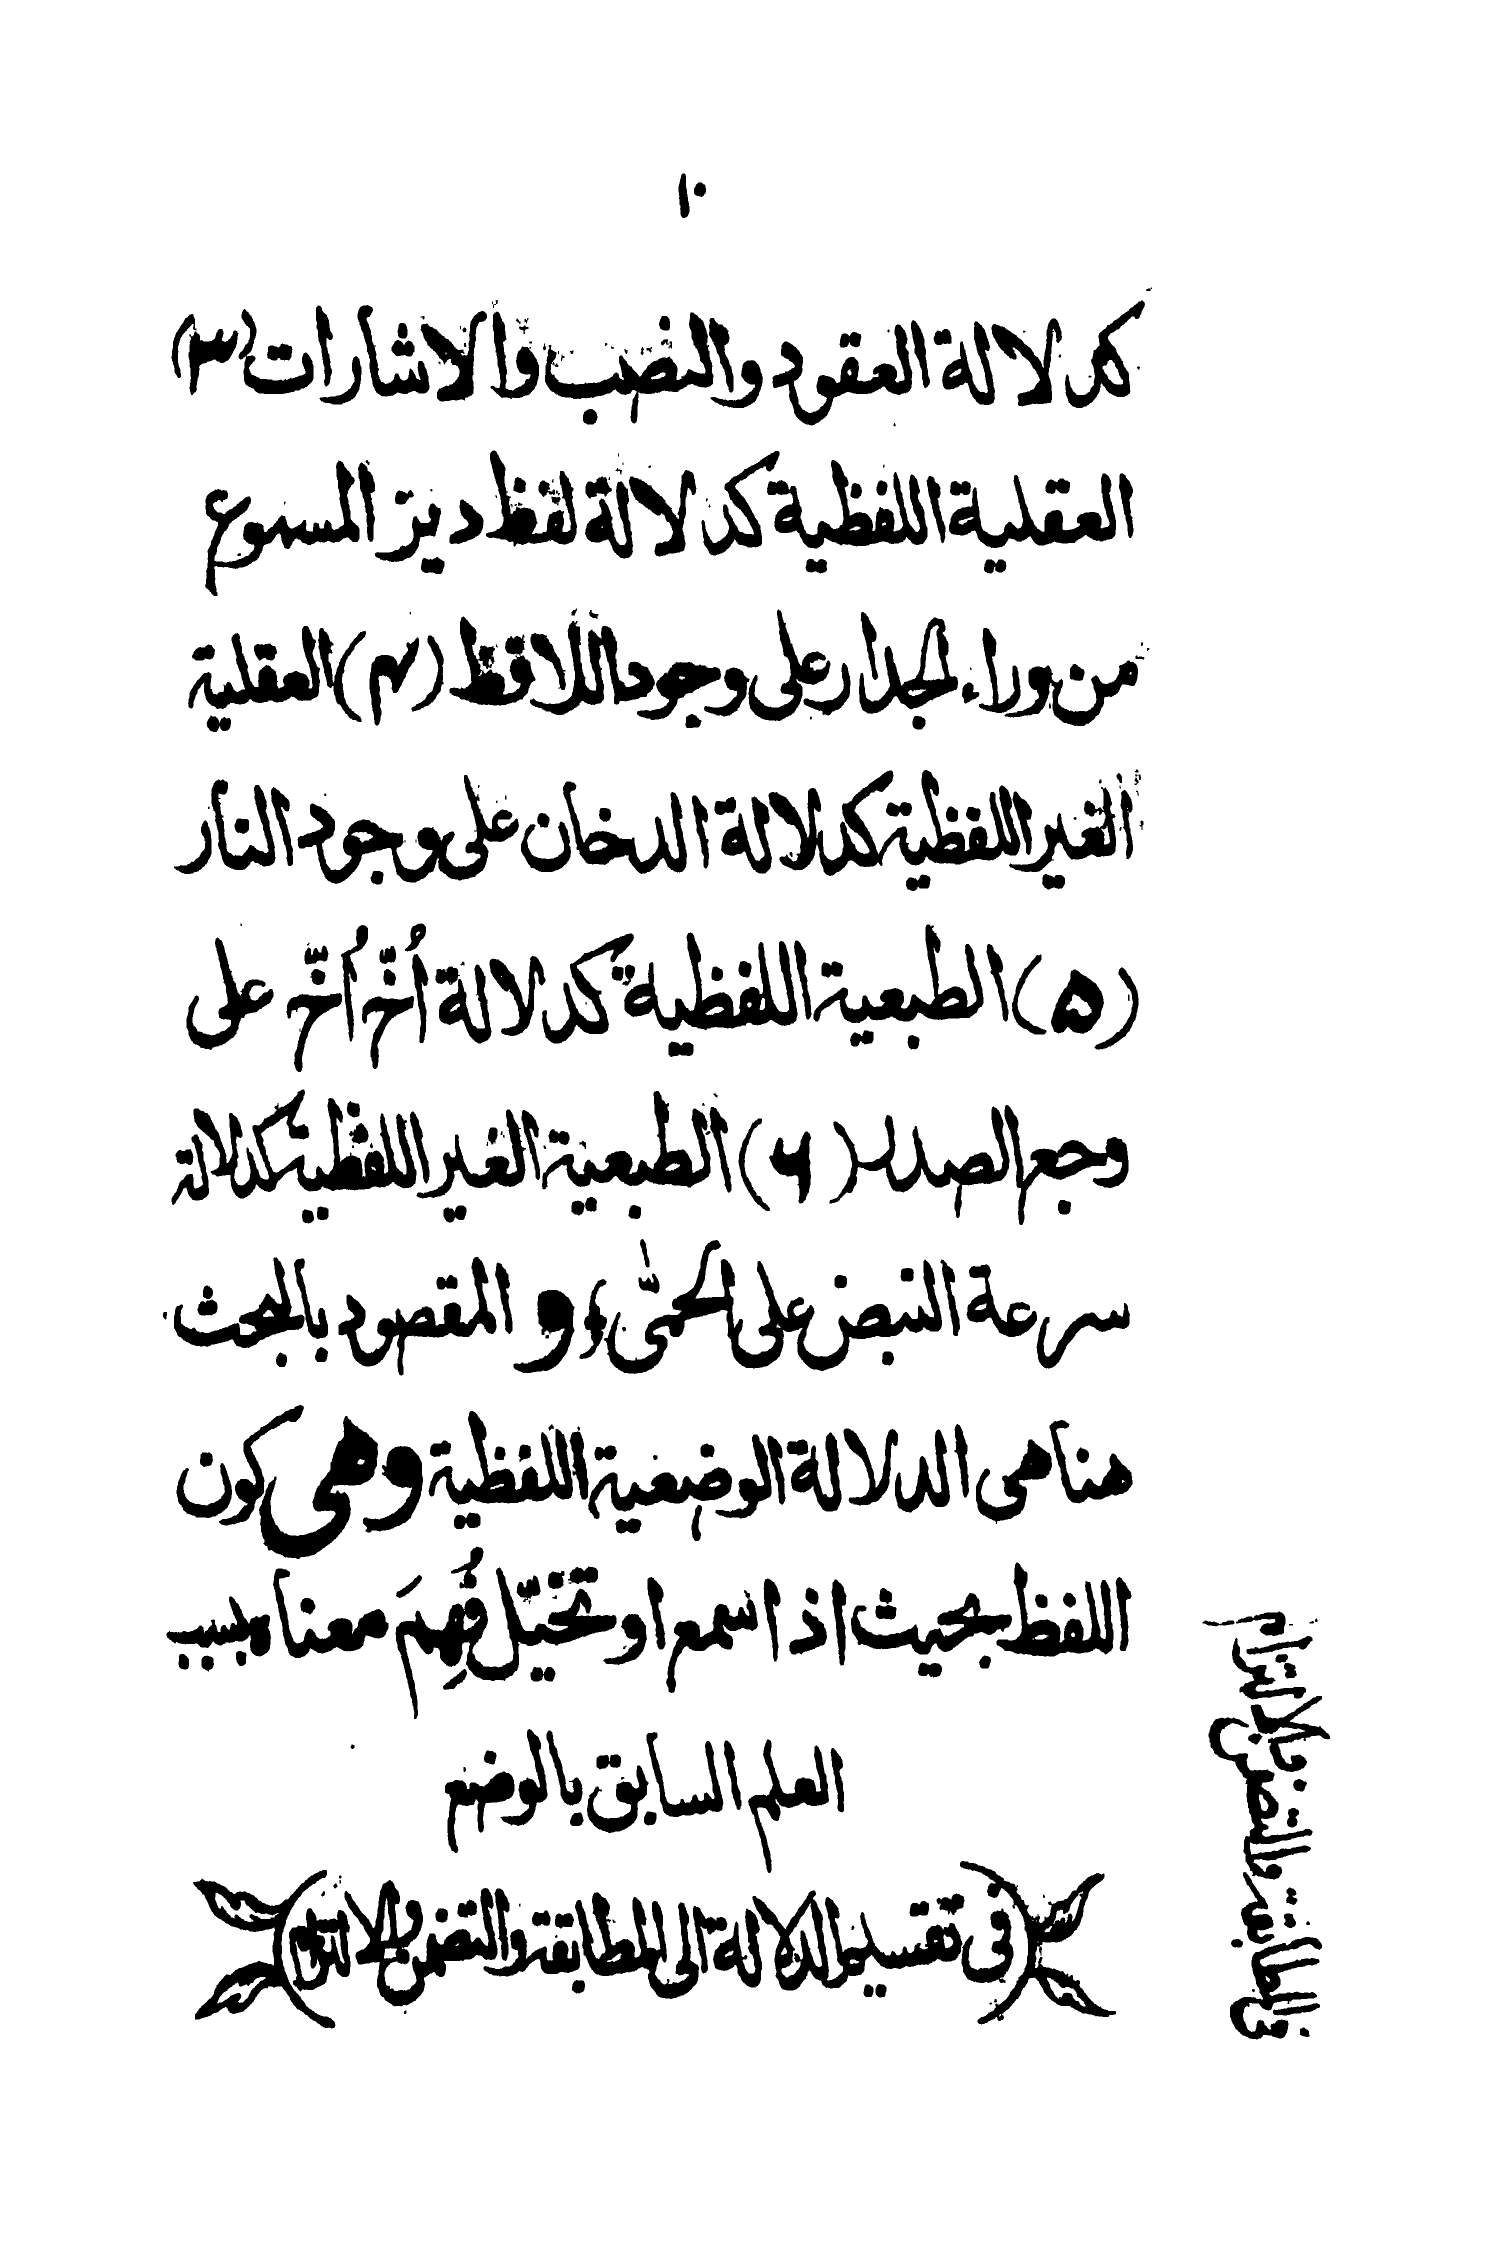 ١٠
كدلالة العقود والنصب والاشارات (٣)
العقلية اللفظية كدلالة لفظ ديز المسموع
من وراء الجدار على وجود اللافظ (۴) العقلية
الغير اللفظية كدلالة الدخان على وجود النار
(۵) الطبعية اللفظية كدلالة أُخّ أُخّ على
وجع الصدر (۶) الطبعية الغير اللفظية كدلالة
سرعة النبض على الحمّى و المقصود بالبحث
هنا هى الدلالة الوضعية اللفظية وهى كون
اللفظ بحيث اذا سمع او تخيّل فُهِمَ معناه بسبب
العلم السابق بالوضع
(فى تقسيم الدلالة الى المطابقة والتضمن والالتزام)
فى المطابقة والتضمن والالتزام